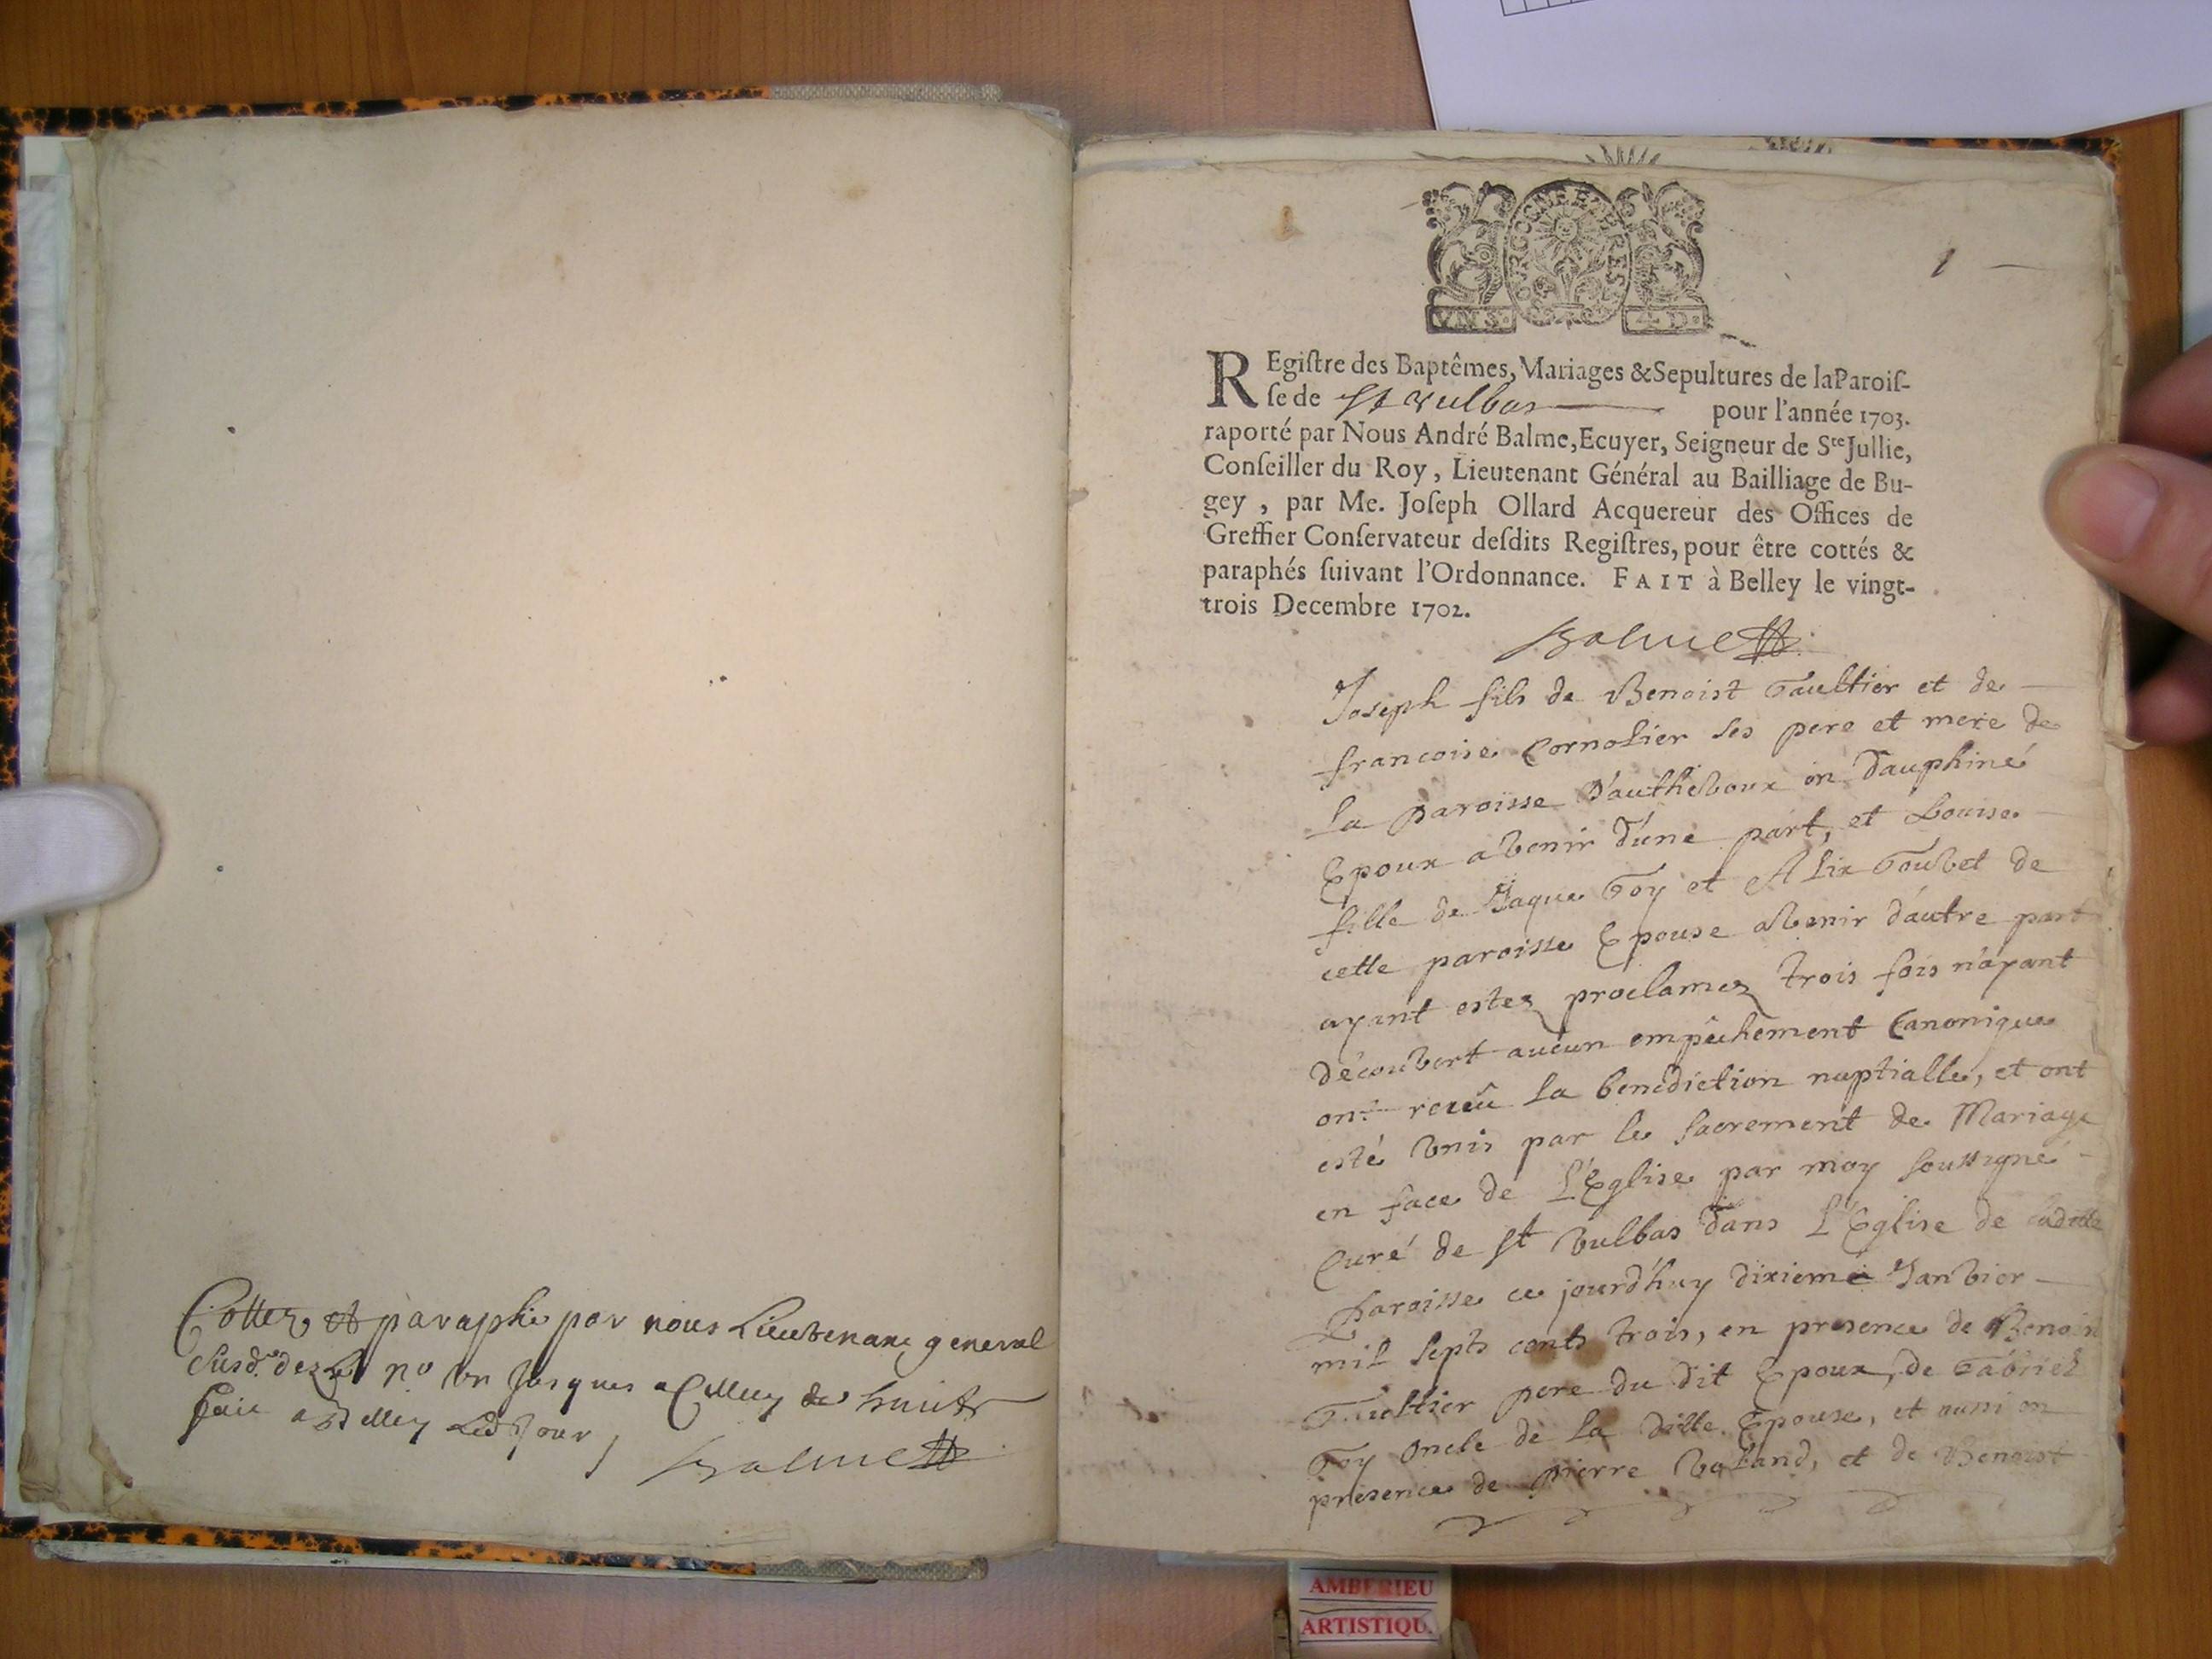 Cottez et paraphé par nous Lieutenant general
susd. dez le no un jusques a celluy de huict
Faict a Belley Led Jour
Balme
1
GEN. DE BOURGOGNE ET BRESSE
VN S. 4 D.
REgiſtre des Baptêmes, Mariages & Sepultures de la Paroiſ-
ſe de St Vulbas pour l'année 1703.
raporté par Nous André Balme, Ecuyer, Seigneur de Ste Jullie,
Conſeiller du Roy, Lieutenant Général au Bailliage de Bu-
gey, par Me. Joſeph Ollard Acquereur des Offices de
Greffier Conſervateur deſdits Regiſtres, pour être cottés &
paraphés ſuivant l'Ordonnance. FAIT à Belley le vingt-
trois Decembre 1702.
Balme
Joseph fils de Benoist Gaultier et de
francoise Cornolier ses pere et mere de
la paroisse D'anthevoux en Dauphiné
Epoux avenir d'une part, et Louise
fille de Jaque Goy et Alix Goubet de
cette paroisse Epouse avenir d'autre part
ayant estez proclamez trois fois n'ayant
découvert aucun empêchement Canonique
ont receû la benediction nuptialle, et ont
esté unis par le sacrement de Mariage
en face de L'Eglise par moy soussigné
Curé de St Vulbas dans L'Eglise de ladite
Paroisse ce jourd'huy dixieme Janvier
mil septs cents trois, en presence de Benoist
Gaultier pere du dit Epoux, de Gabriel
Goy oncle de la ditte Epouse, et aussi en
presence de pierre Voland, et de Benoist
AMBERIEU
ARTISTIQU